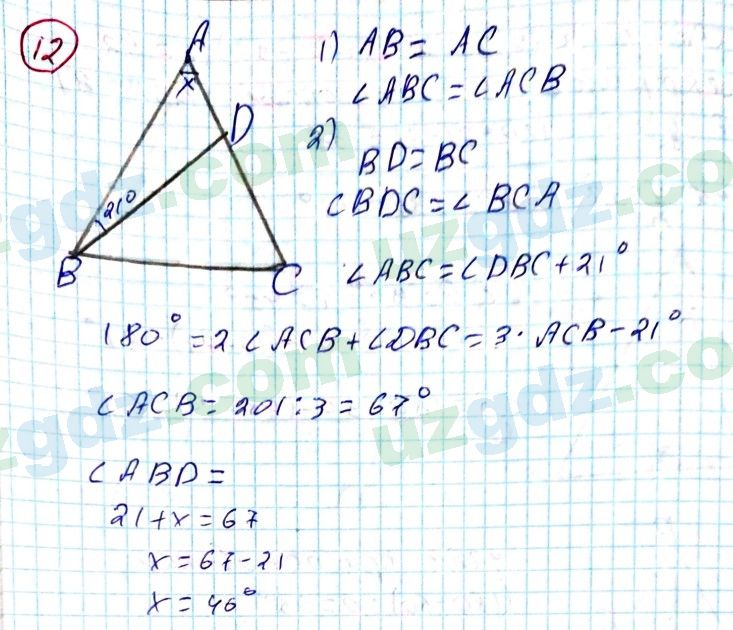 12
A
x
D
21°
B
C
1) AB = AC
∠ABC = ∠ACB
2)
BD = BC
∠BDC = ∠BCA
∠ABC = ∠DBC + 21°
180° = 2 ∠ACB + ∠DBC = 3 · ACB - 21°
∠ACB = 201 : 3 = 67°
∠ABD =
21 + x = 67
x = 67 - 21
x = 46°
uzgdz.com
uzgdz.com
uzgdz.com
uzgdz.com